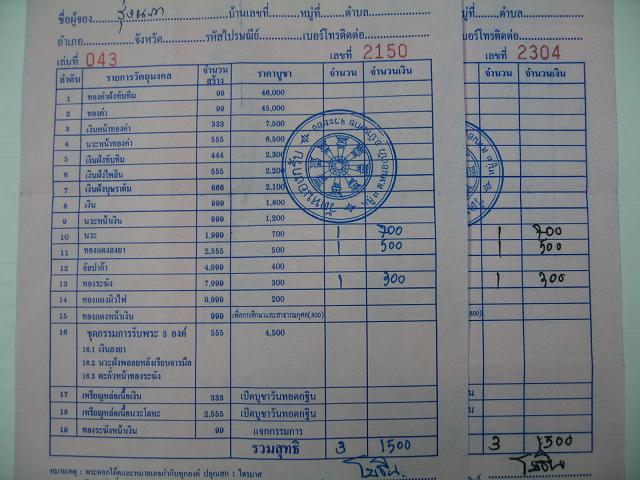 ชื่อผู้จอง รุ่งนภา บ้านเลขที่ หมู่ที่ ตำบล
อำเภอ จังหวัด รหัสไปรษณีย์ เบอร์โทรติดต่อ
เล่มที่ 043 เลขที่ 2150
ลำดับ รายการวัตถุมงคล จำนวนสร้าง ราคาบูชา จำนวน จำนวนเงิน
1 ทองคำฝังทับทิม 99 46,000
2 ทองคำ 99 45,000
3 เงินหน้าทองคำ 333 7,500
4 นวะหน้าทองคำ 555 6,500
5 เงินฝังทับทิม 444 2,300
6 เงินฝังไพลิน 555 2,200
7 เงินฝังบุษราคัม 666 2,100
8 เงิน 999 1,800
9 นวะหน้าเงิน 999 1,200
10 นวะ 1,999 700 1 700
11 ทองแดงลงยา 2,555 500 1 500
12 อัลปาก้า 4,999 400
13 ทองระฆัง 7,999 300 1 300
14 ทองแดงผิวไฟ 9,999 200
15 ทองแดงหน้าเงิน 999 เพื่อการศึกษาและสาธารณกุศล(800)
16 ชุดกรรมการรับพระ 3 องค์ 555 4,500
16.1 เงินลงยา
16.2 นวะฝังพลอยหลังเรียบจารมือ
16.3 ตะกั่วหน้าทองระฆัง
17 เหรียญหล่อเนื้อเงิน 333 เปิดบูชาวันทอดกฐิน
18 เหรียญหล่อเนื้อนวะโลหะ 2,555 เปิดบูชาวันทอดกฐิน
19 ทองระฆังหน้าเงิน 99 แจกกรรมการ
รวมสุทธิ 3 1500
หมายเหตุ : พระตอกโค๊ตและหมายเลขกำกับทุกองค์ ปลุกเสก 1 ไตรมาศ
ตำบล
เบอร์โทรติดต่อ
เลขที่ 2304
จำนวน จำนวนเงิน
1 700
1 500
1 300
3 1500